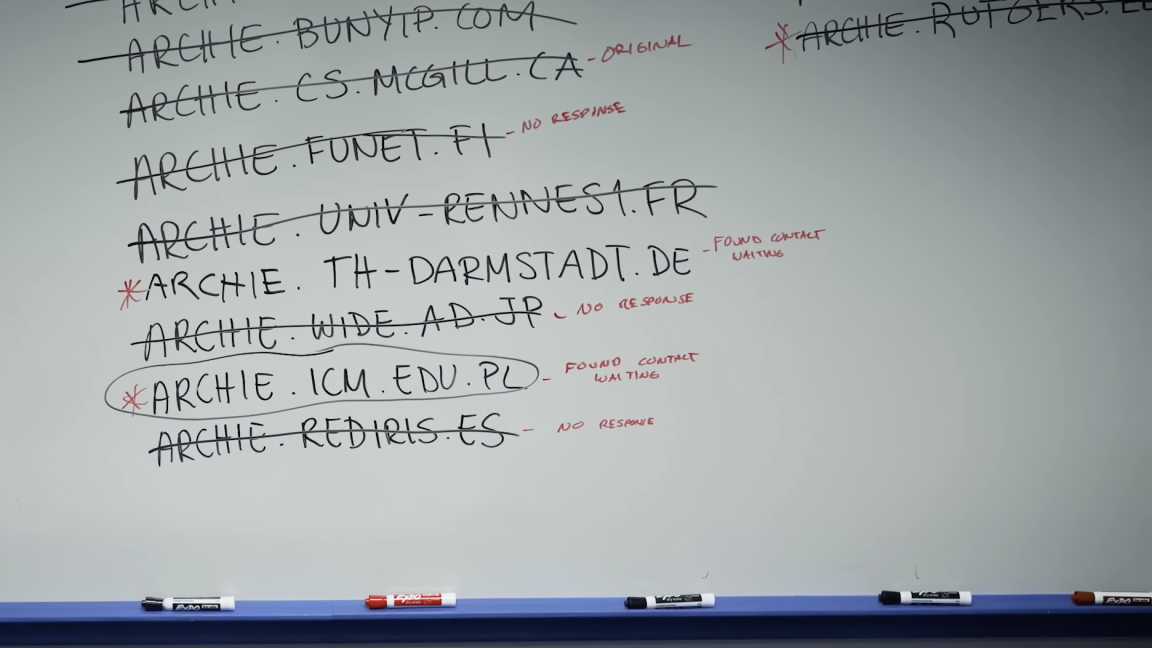 ARCHIE.BUNYIP.COM
ARCHIE.CS.MCGILL.CA - ORIGINAL
ARCHIE.FUNET.FI - NO RESPONSE
ARCHIE.UNIV-RENNES1.FR
*ARCHIE.TH-DARMSTADT.DE - FOUND CONTACT
WAITING
ARCHIE.WIDE.AD.JP - NO RESPONSE
*ARCHIE.ICM.EDU.PL - FOUND CONTACT
WAITING
ARCHIE.REDIRIS.ES - NO RESPONSE
*ARCHIE.RUTGERS.ED
EXPO